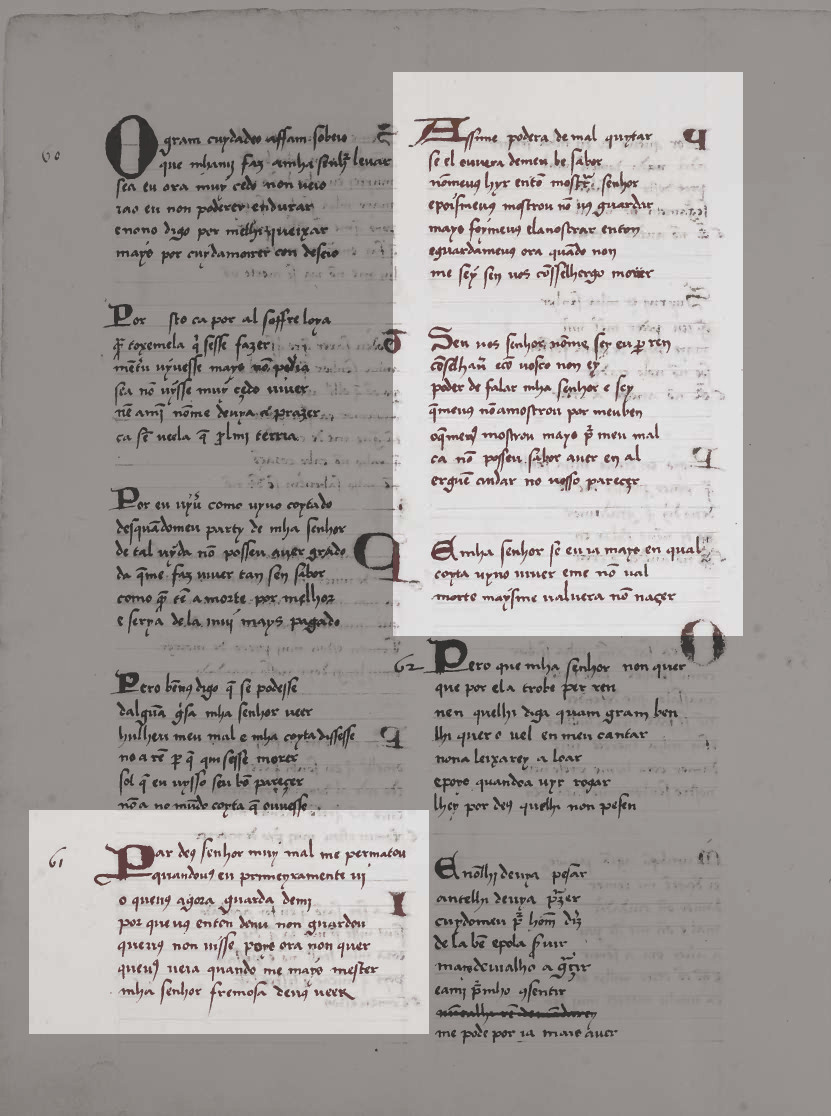 60
O gram cuydado assam sobeio
que mhanij faz amha senhʳ levar
sea eu ora muy cedo non veio
ia o eu non poderey endurar
enono digo por melhi queixar
mays por cuydamorrer con deseio
Por sto ca por al soffre loya
q̄ sesse fazer
uyuesse mays nō podia
sea nō uysse muy çedo viuer
nē ami nōme deuya a prazer
ca sē veela q̄ terria
Por eu uyuʳ como uyuo coytado
desquādomeu party de mha senhor
de tal uyda nō posseu auer grado
da q̄me faz uiuer tan sen sabor
como q̄ tē a morte por melhor
e serya dela muj mays pagado
Pero bē digo q̄ se podesse
dalgūa gⁱsa mha senhor veer
meu mal e mha coyta dissesse
no a rē qm sesse morer
sol q̄ eu uysso seu bō pareçer
nō a no mūdo coyta q̄ ouuesse
61
Par deꝯ senhor muy mal me permatou
quandouꝯ eu primeyramente ui
o queuꝯ agora guarda demi
por queuꝯ entōn deuu non guardou
queuꝯ non uisse pore ora non quer
queuꝯ veia quando me mays mester
mha senhor fremosa deuꝯ veer
Assime podera de mal quytar
se el ouuera demeu be sabor
nōmeuꝯ hyr entō mostrʳ senhor
epoismeuꝯ mostrou nō uꝯ guardar
mays foymeuꝯ elanostrar enton
eguardameuꝯ ora quādo non
me sey sen uos cōsselhergo morrer
Sen uos senhor nōme sey eu ꝑ ren
cōselhar ecō uosco non ey
poder de falar mha senhor e sey
q̄meuꝯ nō amostrou por meu ben
oq̄meuꝯ mostrou mays p̄ meu mal
ca nō posseu sabor auer en al
erguē andar no uosso pareçer
E mha senhor se eu ia mays en qual
coyta uyuo uiuer eme nō ual
morte maysme ualuera nō naçer
62
Pero que mha senhor non quer
que por ela trobe per ren
nen quelhi diga quam gram ben
lhi quero vel en meu cantar
nona leixarey a loar
epero quandoa uyr rogar
lhey por deꝯ quelhi non pesen
E nōlhi deuya pesar
antelhi deuya
cuydomeu p̄ hom
dela bē epola
masdeualho a
eami sentir
me pode por ia mais auer